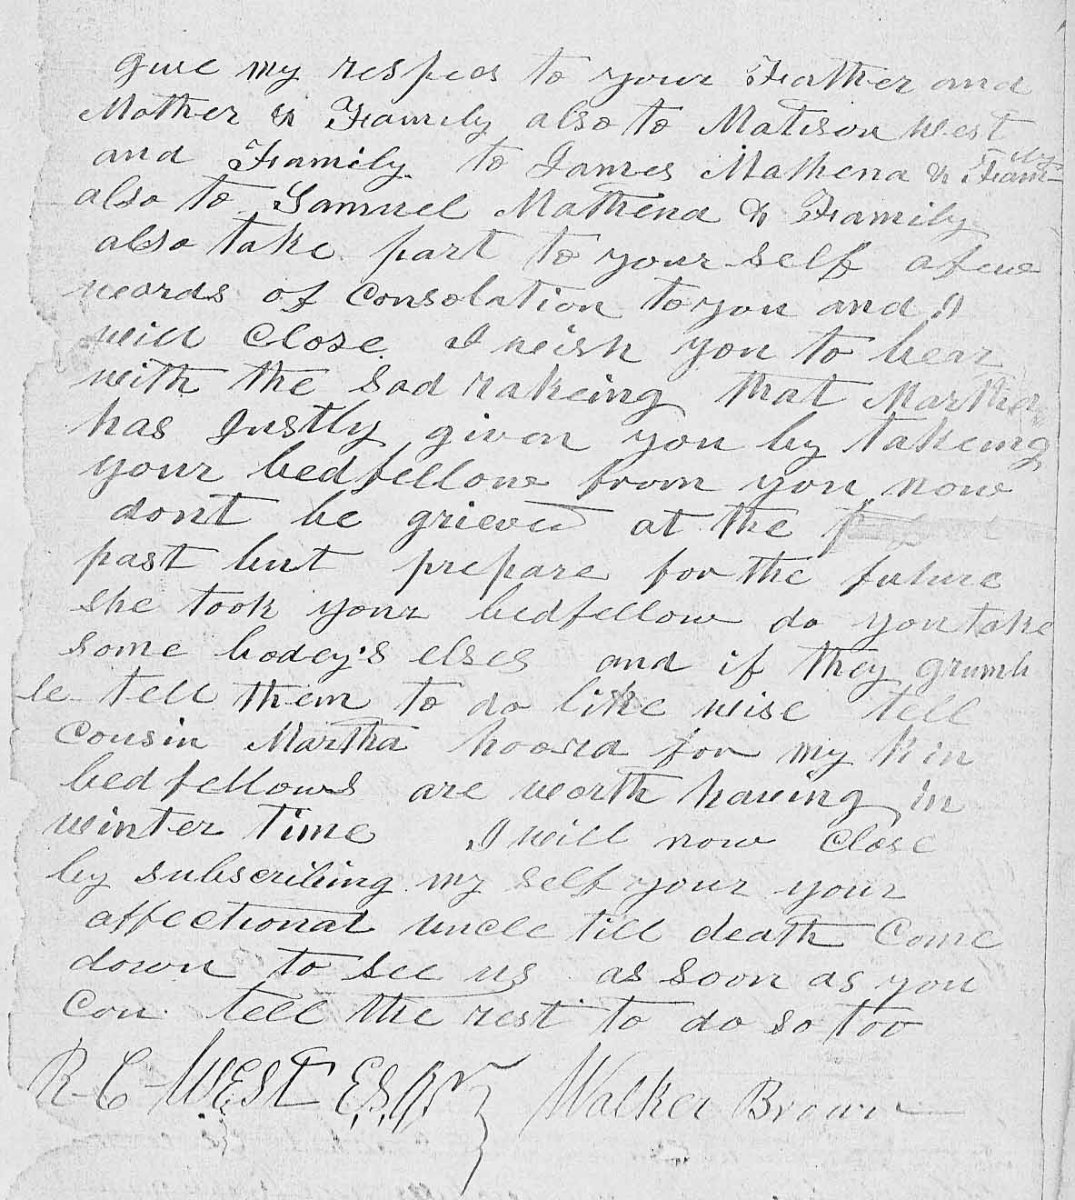 give my respecs to your Father and
Mother & Family also to Matison West
and Family to James Mathena & Family
also to Samuel Mathena & Family
also take part to your self a few
words of Consolation to you and I
will Close I wish you to bear
with the sad rakeing that Martha
has Justly given you by takeing
your bedfellow from you now
dont be grieved at the
past but prepare for the future
she took your bedfellow do you take
some bodey's elses and if they grumb
le tell them to do like wise tell
Cousin Martha hoord for my kin
bedfellows are worth having in
winter time I will now Close
by subscribing my self your your
affectional uncle till death Come
down to see us as soon as you
Con tell the rest to do so too
R-C-WEST E.S.Qr Walker Brown